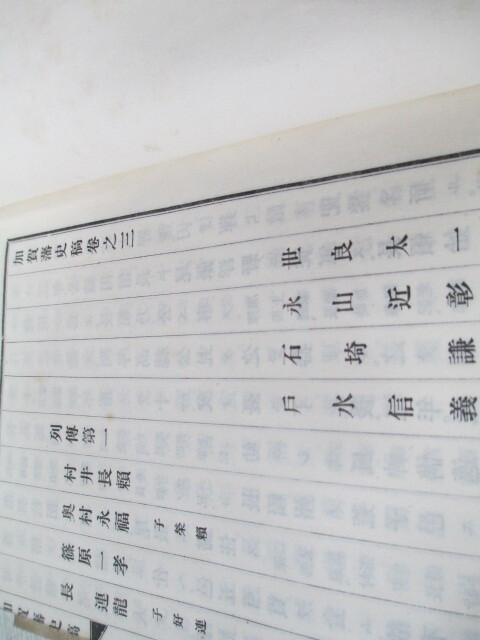 加賀藩史稿卷之三
世良太一
永山近彰
石埼謙
戶水信義
列傳第一
村井長賴
奧村永福 子榮賴
篠原一孝
長連龍 子好連
加賀藩史稿